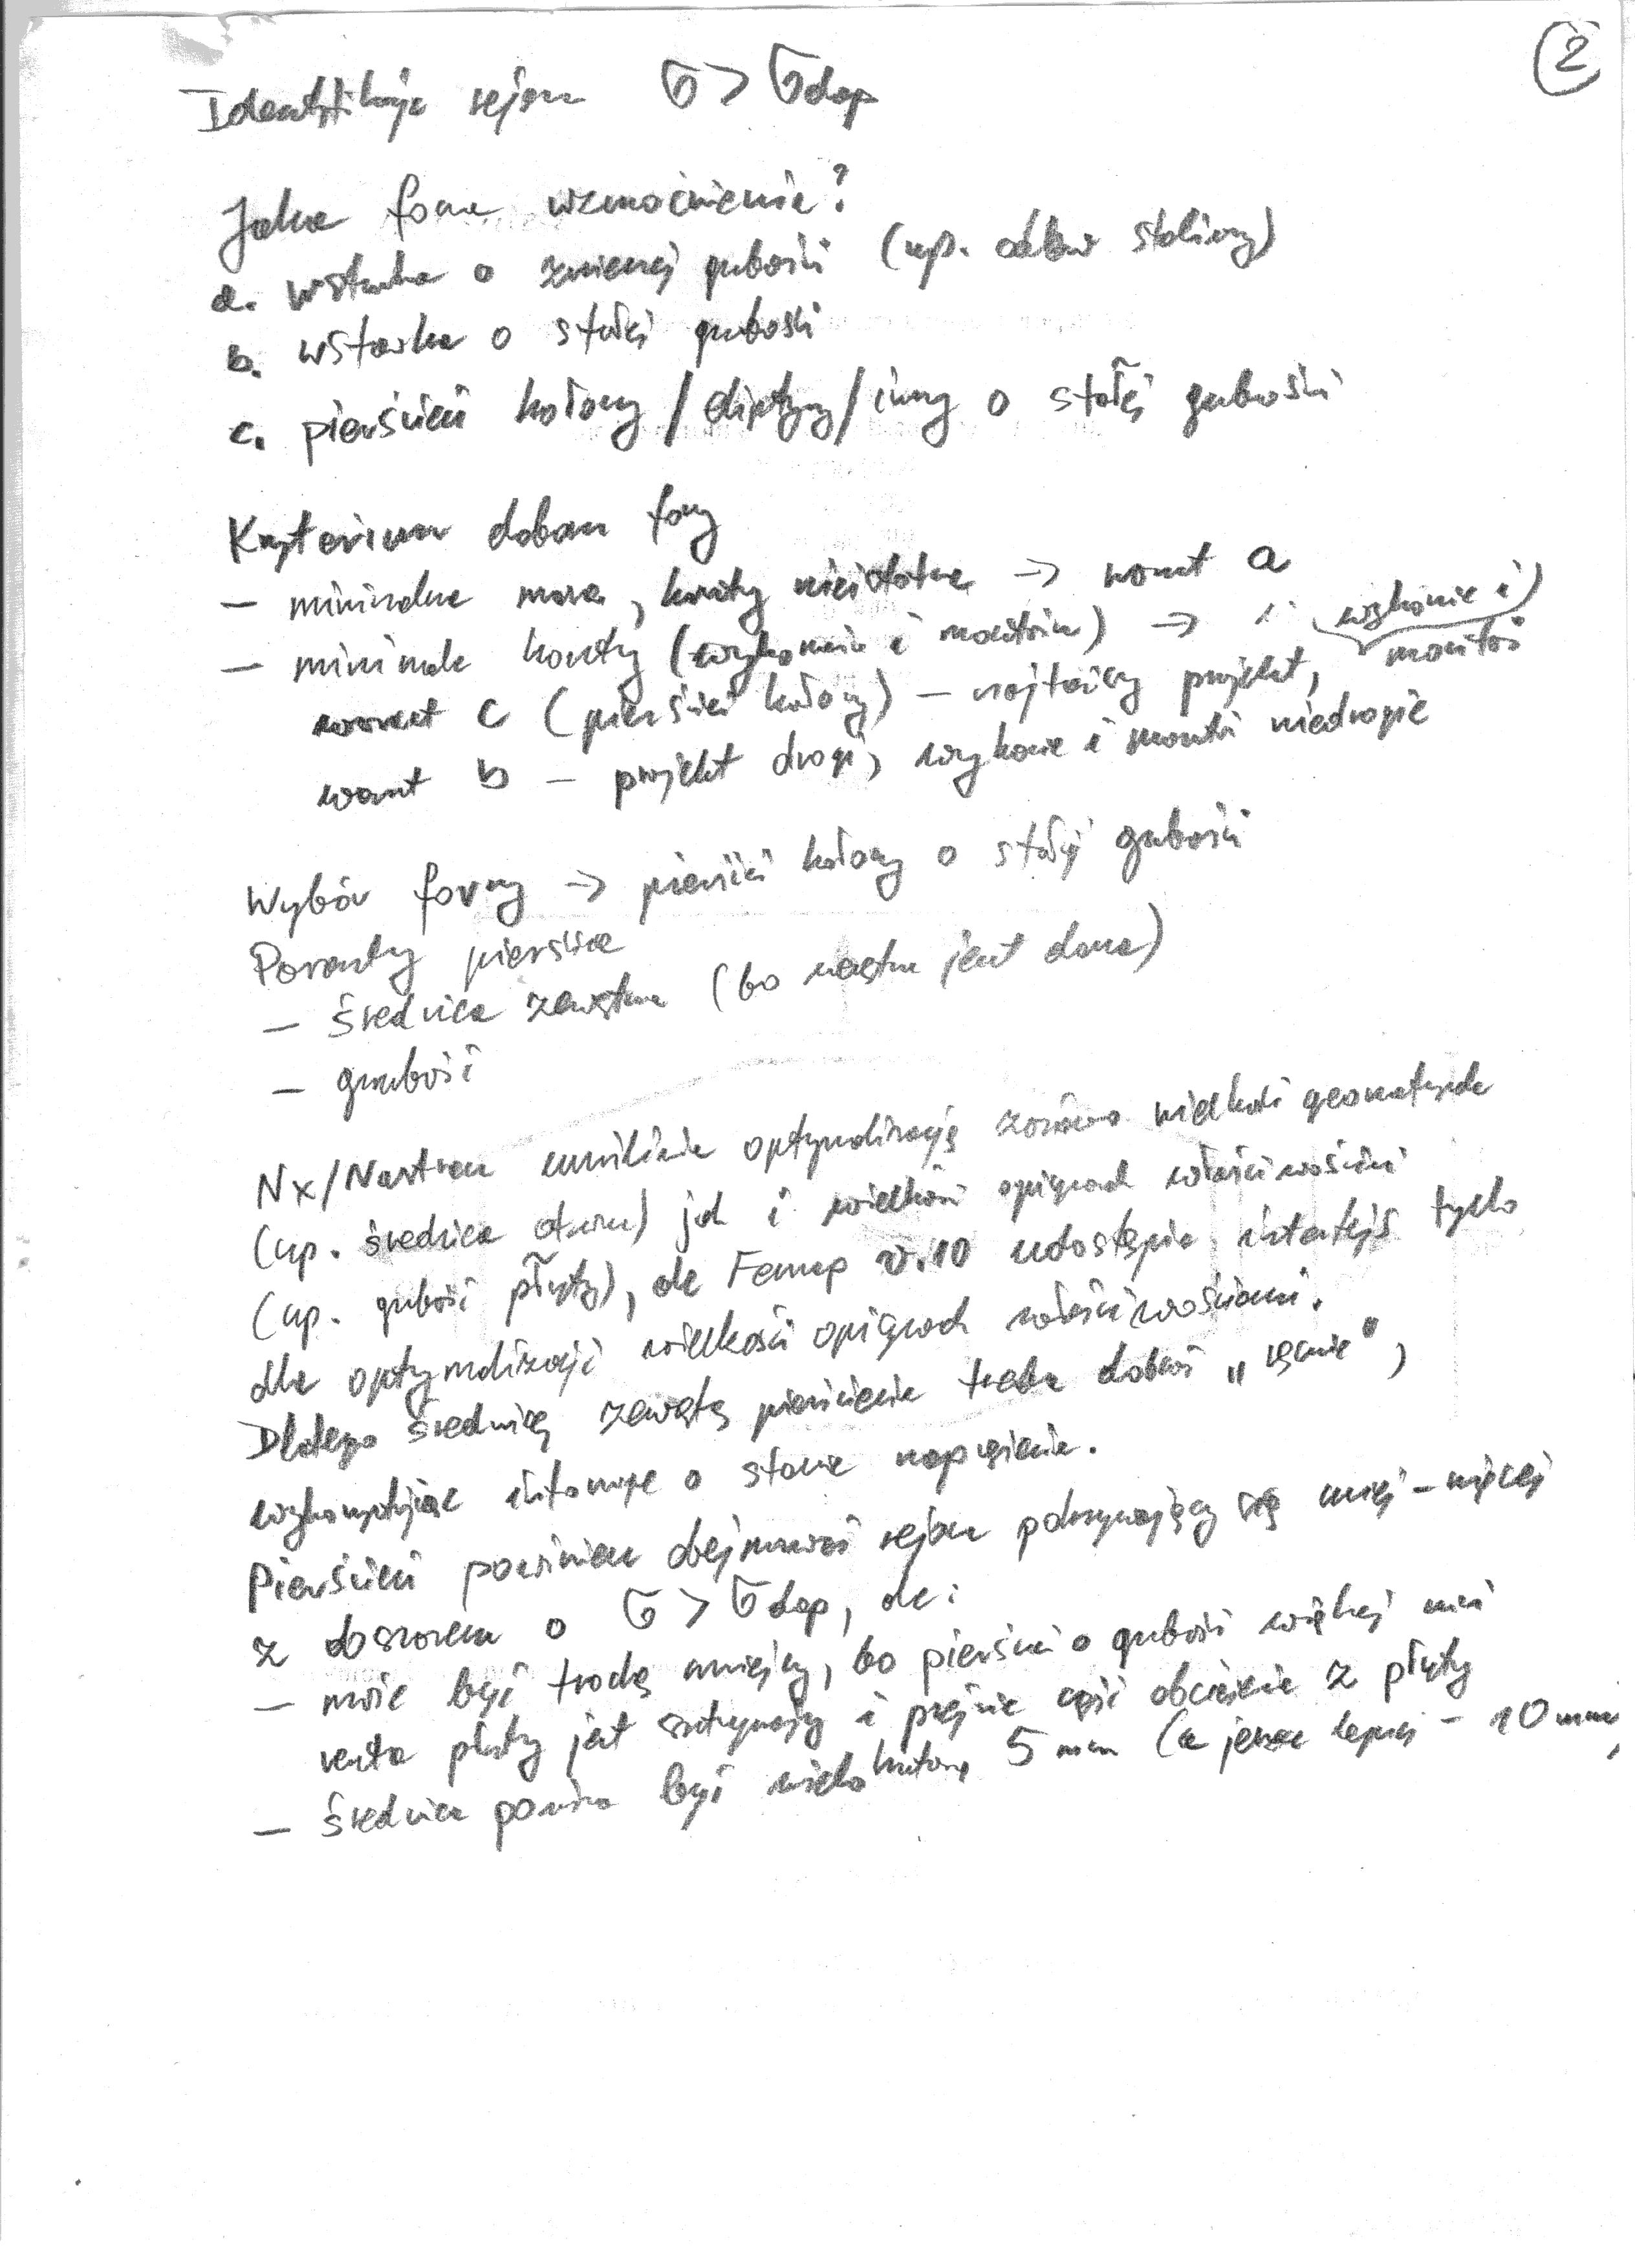 ②
Identyfikacja rejonu σ > σdop
Jaka forma wzmocnienia?
a. wstawka o zmiennej grubości (np. odlew staliwny)
b. wstawka o stałej grubości
c. pierścień kołowy / eliptyczny / inny o stałej grubości
Kryterium doboru formy
– minimalna masa, koszty nieistotne → wariant a
– minimalne koszty (wykonania i montażu) → wykonanie i montaż
wariant c (pierścień kołowy) – najtańszy projekt,
wariant b – projekt drogi, wykonanie i montaż niedrogie
Wybór formy → pierścień kołowy o stałej grubości
Parametry pierścienia
– średnica zewnętrzna (bo wewnętrzna jest dana)
– grubość
Nx/Nastran umożliwia optymalizację zarówno wielkości geometrycznych
(np. średnica otworu) jak i wielkości opisanych właściwościami
(np. grubość płyty), ale Femap v.10 udostępnia interfejs tylko
dla optymalizacji wielkości opisanych właściwościami.
Dlatego średnicę zewnętrzną pierścienia trzeba dobrać „ręcznie",
wykorzystując informację o stanie naprężenia.
Pierścień powinien obejmować rejon pokrywający się mniej-więcej
z obszarem o σ > σdop, ale:
– może być trochę mniejszy, bo pierścień o grubości większej niż
reszta płyty jest sztywniejszy i przejmie część obciążenia z płyty
– średnica powinna być wielokrotnością 5 mm (a jeszcze lepiej – 10 mm)